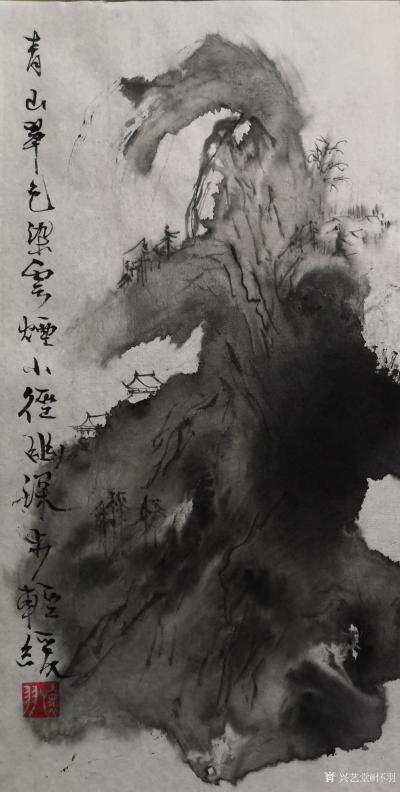 青山翠色染雲煙小徑幽深步輕緩
懷羽
兴艺堂@怀羽